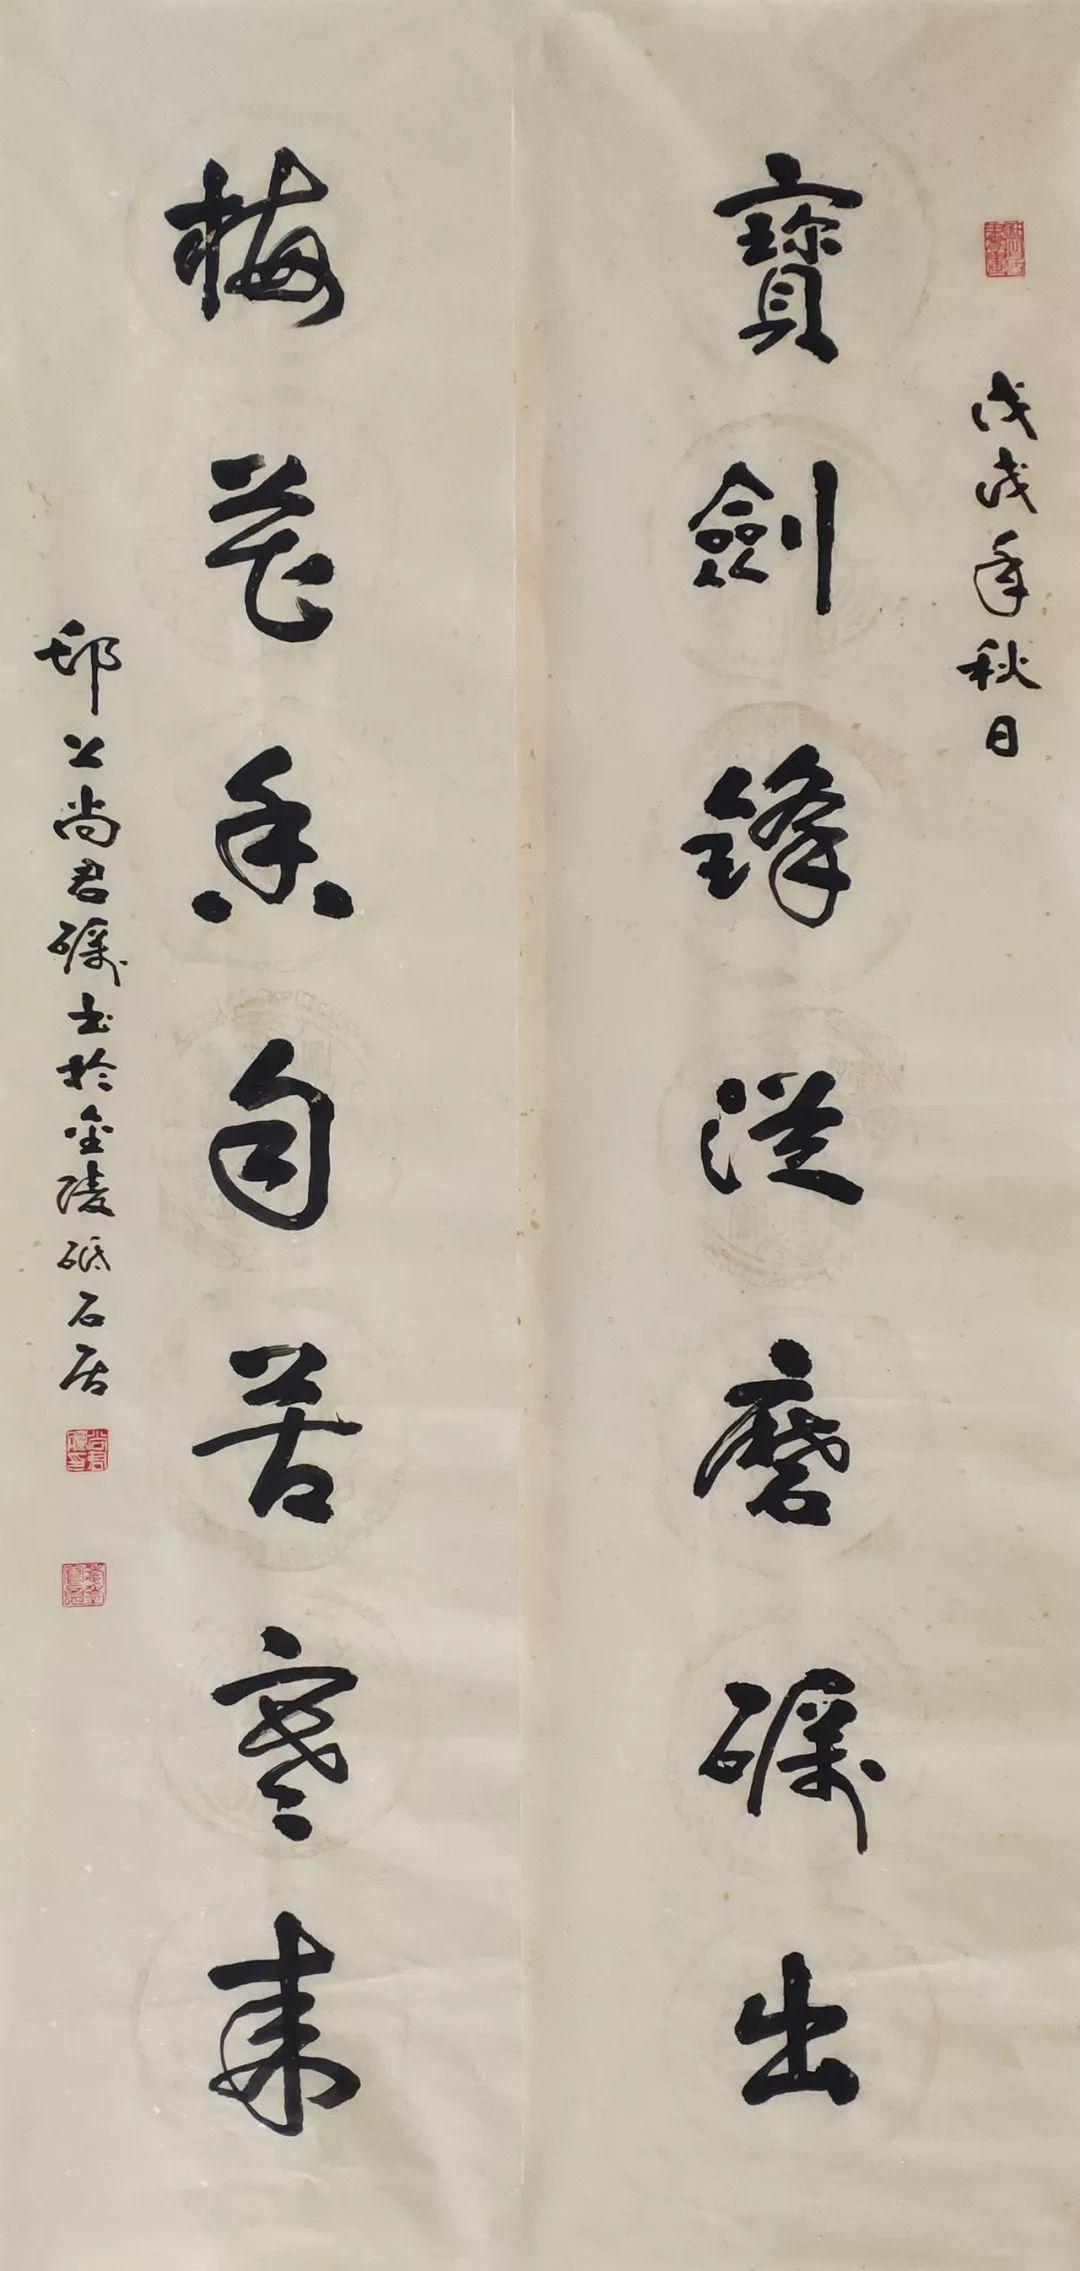 戊戌年秋日
寶劍鋒從磨礪出
梅花香自苦寒來
邳公尚君礪书於金陵砥石居